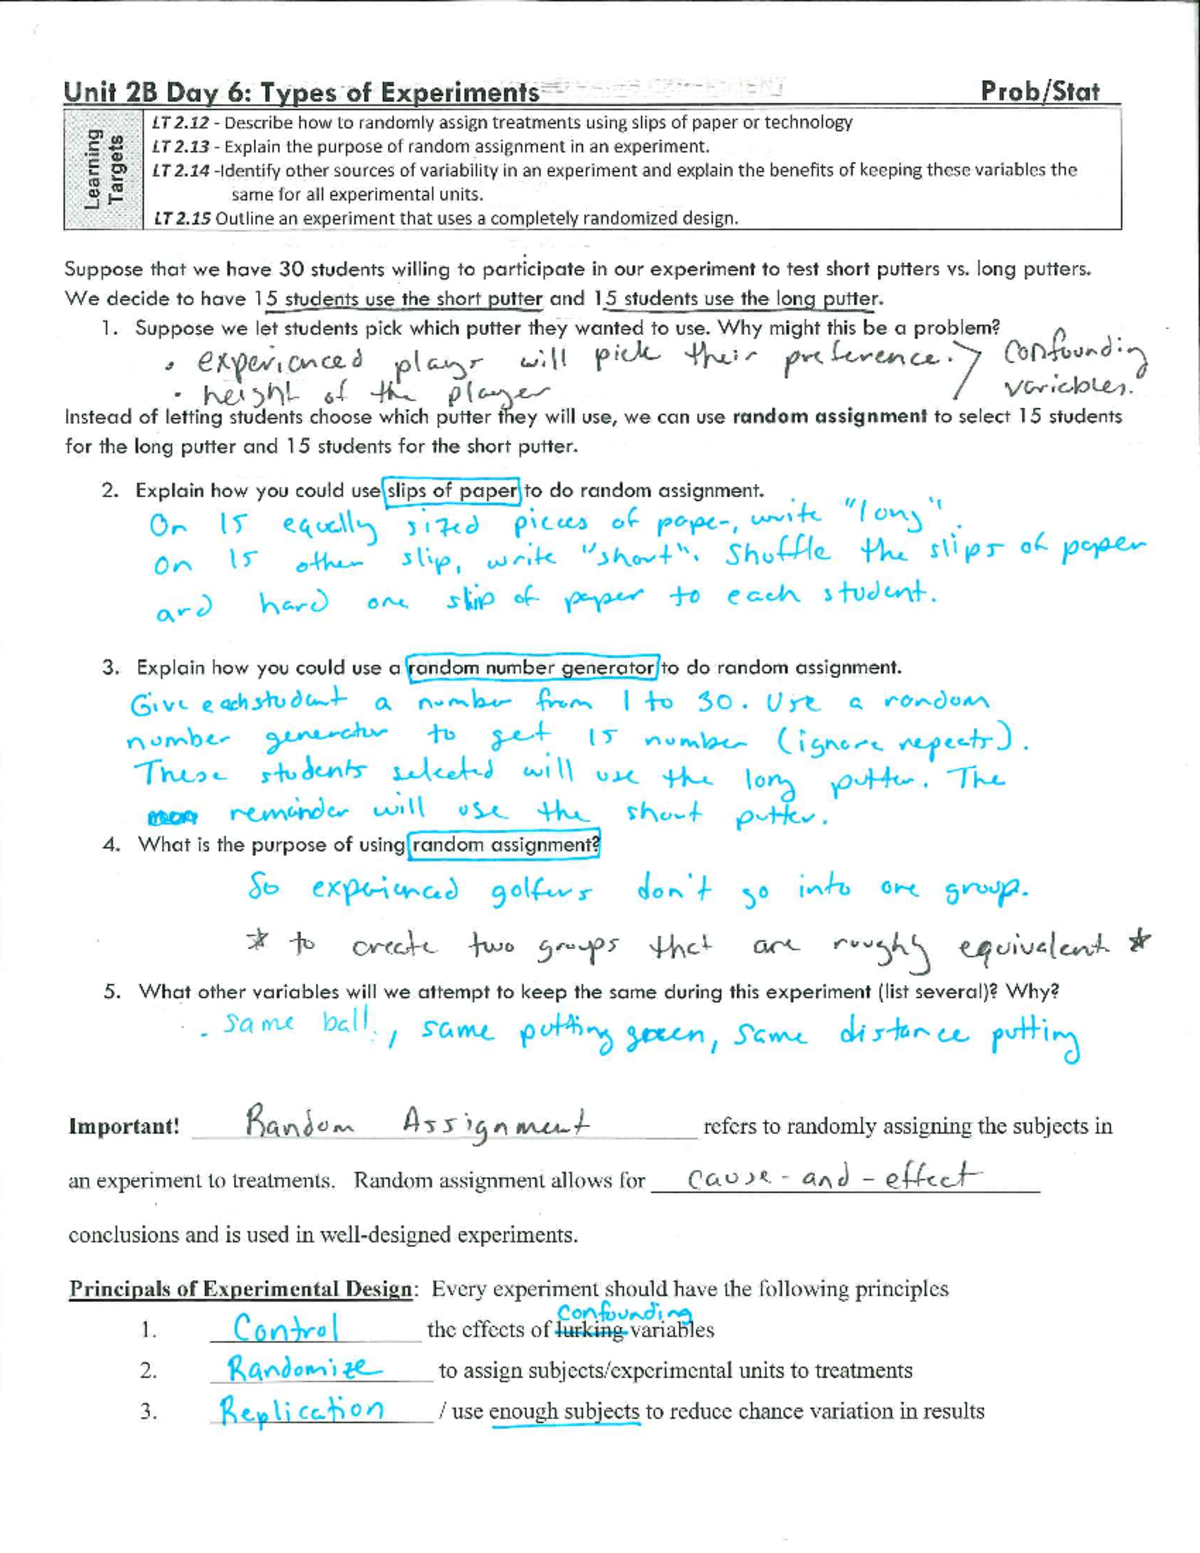 Unit 2B Day 6: Types of Experiments Prob/Stat
Learning Targets
LT 2.12 - Describe how to randomly assign treatments using slips of paper or technology
LT 2.13 - Explain the purpose of random assignment in an experiment.
LT 2.14 -Identify other sources of variability in an experiment and explain the benefits of keeping these variables the
same for all experimental units.
LT 2.15 Outline an experiment that uses a completely randomized design.
Suppose that we have 30 students willing to participate in our experiment to test short putters vs. long putters.
We decide to have 15 students use the short putter and 15 students use the long putter.
1. Suppose we let students pick which putter they wanted to use. Why might this be a problem?
• experienced playr will pick their preference. confounding
• height of the player variables.
Instead of letting students choose which putter they will use, we can use random assignment to select 15 students
for the long putter and 15 students for the short putter.
2. Explain how you could use slips of paper to do random assignment.
On 15 equally sized pieces of paper, write "long".
On 15 other slip, write "short". Shuffle the slips of paper
and hand one slip of paper to each student.
3. Explain how you could use a random number generator to do random assignment.
Give each student a number from 1 to 30. Use a random
number generator to get 15 number (ignore repeats).
These students selected will use the long putter. The
remainder will use the short putter.
4. What is the purpose of using random assignment?
So experienced golfers don't go into one group.
* to create two groups that are roughly equivalent *
5. What other variables will we attempt to keep the same during this experiment (list several)? Why?
. same ball, same putting green, same distance putting
Important! Random Assignment refers to randomly assigning the subjects in
an experiment to treatments. Random assignment allows for cause-and-effect
conclusions and is used in well-designed experiments.
Principals of Experimental Design: Every experiment should have the following principles
confounding
1. Control the effects of lurking variables
2. Randomize to assign subjects/experimental units to treatments
3. Replication / use enough subjects to reduce chance variation in results